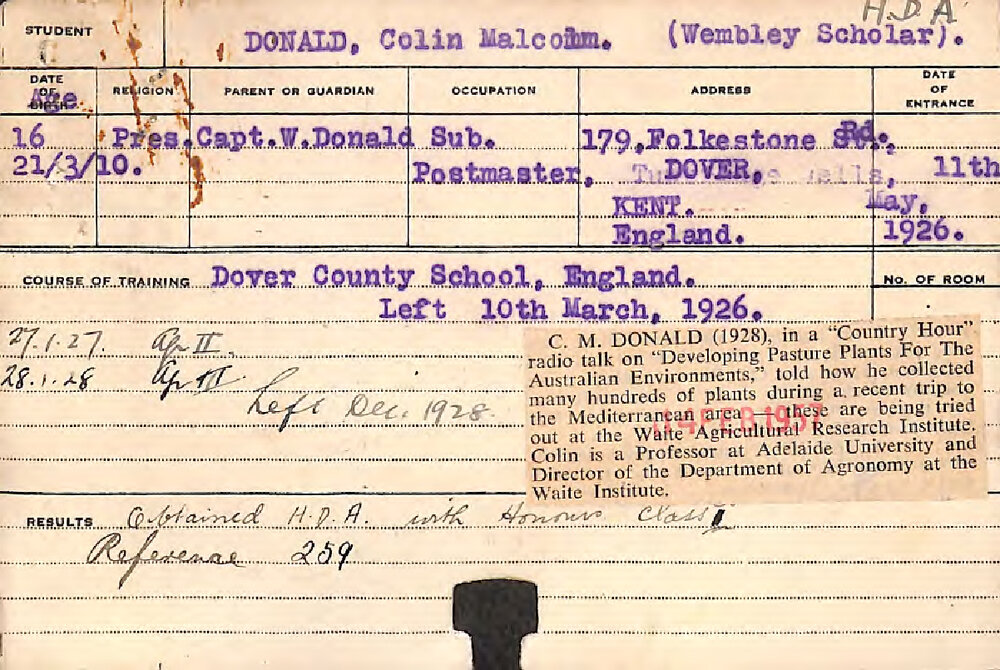 H.D.A
STUDENT DONALD, Colin Malcolm. (Wembley Scholar).
DATE OF BIRTH RELIGION PARENT OR GUARDIAN OCCUPATION ADDRESS DATE OF ENTRANCE
Age
16 Pres. Capt.W.Donald Sub. 179,Folkestone Rd.,
21/3/10. Postmaster, DOVER, 11th
KENT. May,
England. 1926.
COURSE OF TRAINING Dover County School, England. No. OF ROOM
Left 10th March, 1926.
27.1.27. Ag II.
28.1.28 Ag III.
Left Dec. 1928.
C. M. DONALD (1928), in a “Country Hour”
radio talk on “Developing Pasture Plants For The
Australian Environments,” told how he collected
many hundreds of plants during a recent trip to
the Mediterranean area — these are being tried
out at the Waite Agricultural Research Institute.
Colin is a Professor at Adelaide University and
Director of the Department of Agronomy at the
Waite Institute.
14 FEB 1957
RESULTS Obtained H.D.A. with Honours Class I
Reference 259